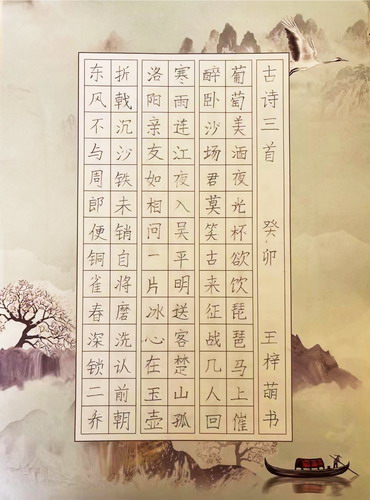 古诗三首 癸卯 王梓萌书
葡萄美酒夜光杯欲饮琵琶马上催
醉卧沙场君莫笑古来征战几人回
寒雨连江夜入吴平明送客楚山孤
洛阳亲友如相问一片冰心在玉壶
折戟沉沙铁未销自将磨洗认前朝
东风不与周郎便铜雀春深锁二乔